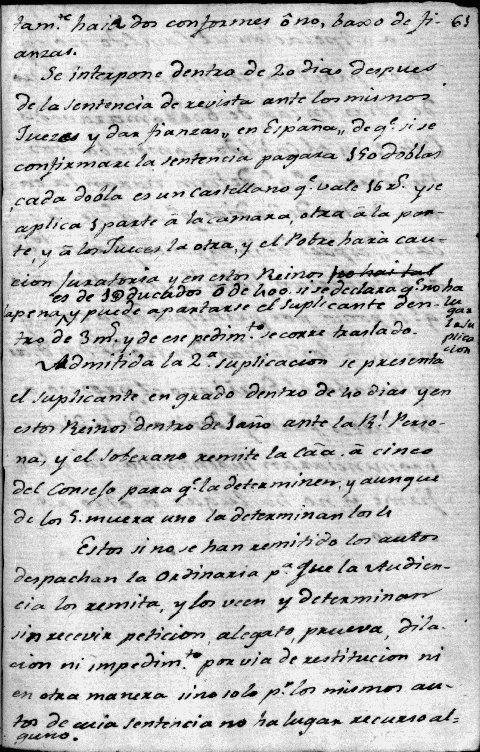 tam.te haia dos conformes ô no, baxo de fi- 63
anzas.
Se interpone dentro de 20 dias despues
de la sentencia de revista ante los mismos
Jueces y dar fianzas,, en España,, de q.e si se
confirmare la sentencia pagara 150 doblas
cada dobla es un Castellano q.e vale 16 r.s y se
aplica 1 parte â la camara, otra â la par-
te, y â los Jueces la otra, y el Pobre harà cau-
cion Juratoria y en estos Reinos
es de 1Ø ducados ô de 400. si se declara q.e no ha
la pena, y puede apartarse el suplicante den- lu
gar
tro de 3 m.s y de ese pedim.to se corre traslado. la su
plica
cion
Admitida la 2.a suplicacion se presenta
el suplicante en grado dentro de 40 dias y en
estos Reinos dentro de 1 año ante la R.l Perso-
na, y el soberano remite la caâ. â cinco
del Consejo para q.e la determinen, y aunque
de los 5. muera uno la determinan los 4
Estos si no se han remitido los autos
despachan la Ordinaria p.a que la Audien-
cia los remita, y los veen y determinan
sin recevir peticion, alegato, prueva, dila-
cion ni impedim.to por via de restitucion ni
en otra manera sino solo p.r los mismos au-
tos de cuia sentencia no ha lugar recurso al-
guno.